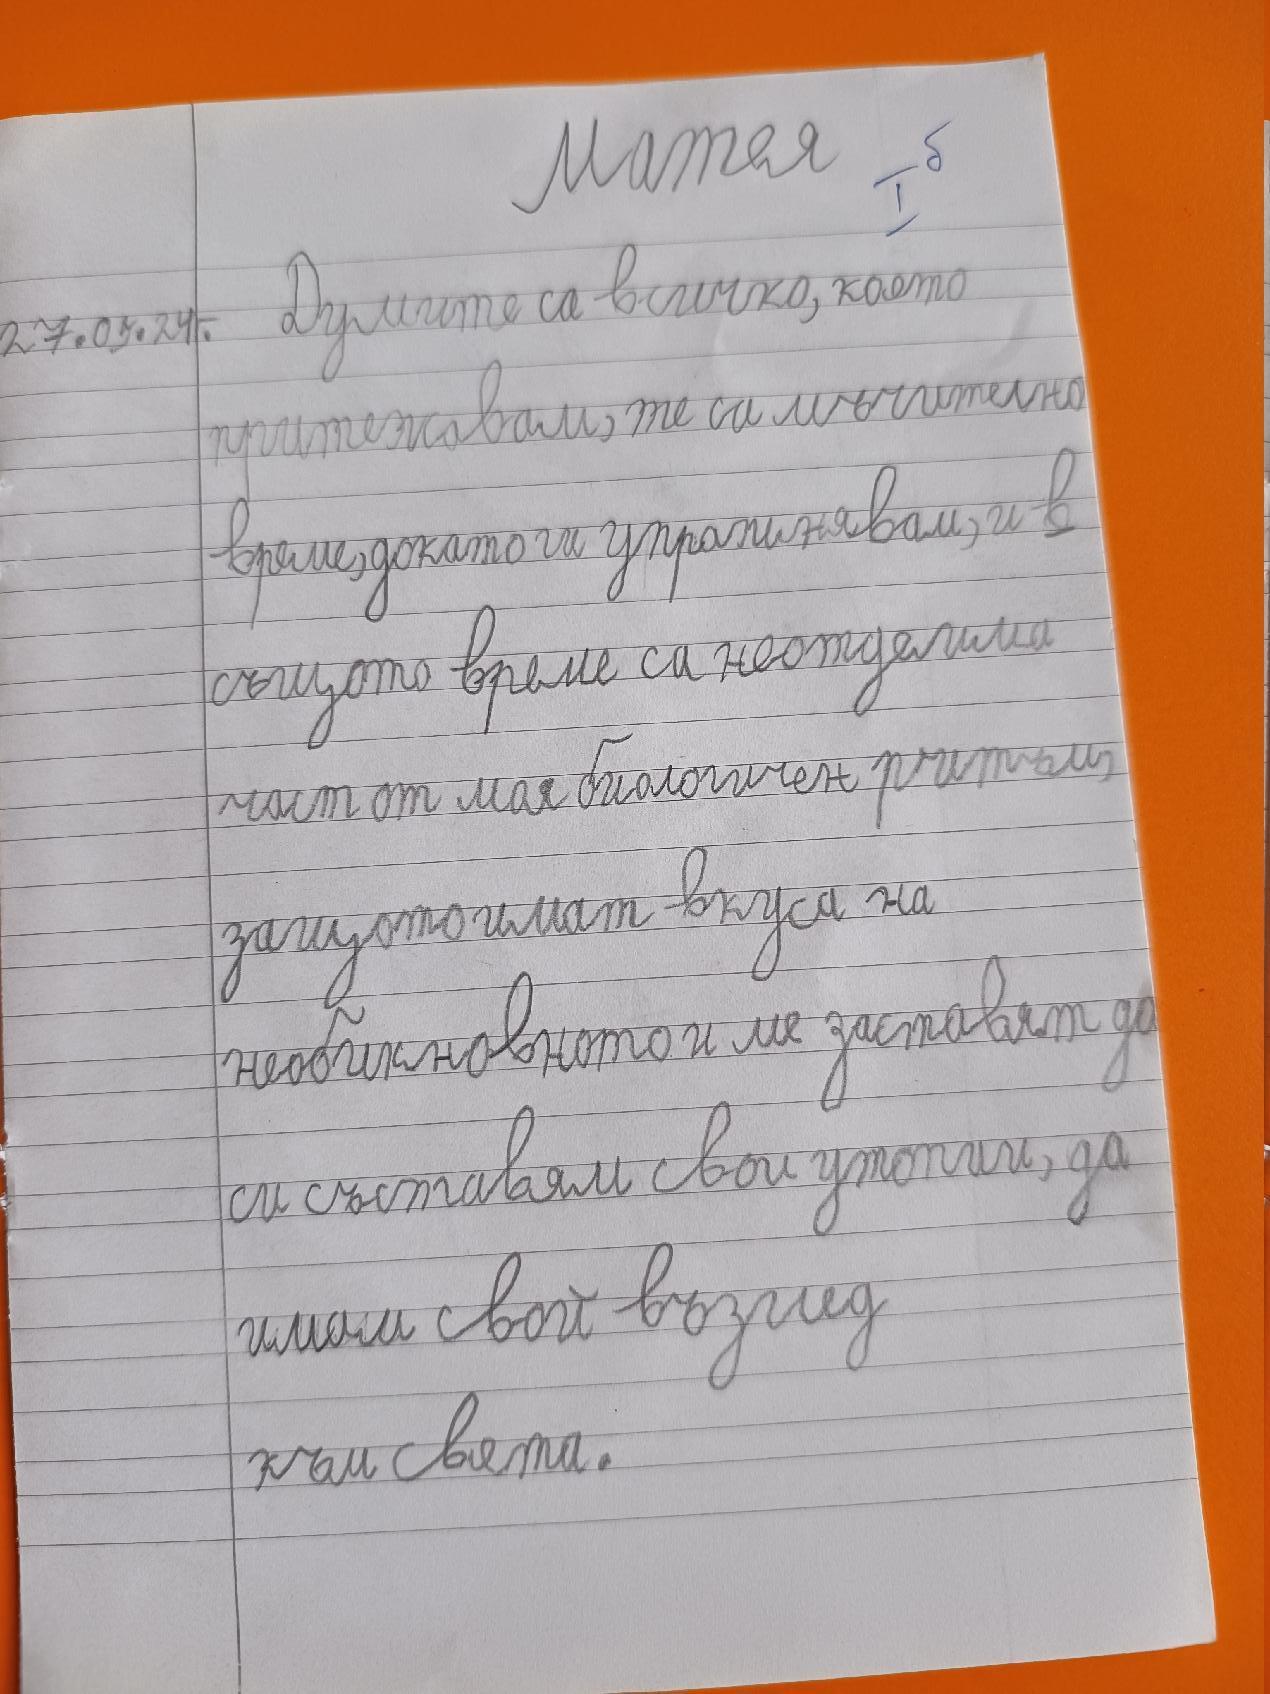 Матея
I б
27.05.24г.
Думите са всичко, което
притежавам, те са мъчително
време, докато ги упражнявам, и в
същото време са неотделима
част от моя биологичен ритъм,
защото имат вкуса на
необикновното и ме заставят да
си съставям свои утопии, да
имам свой възглед
към света.